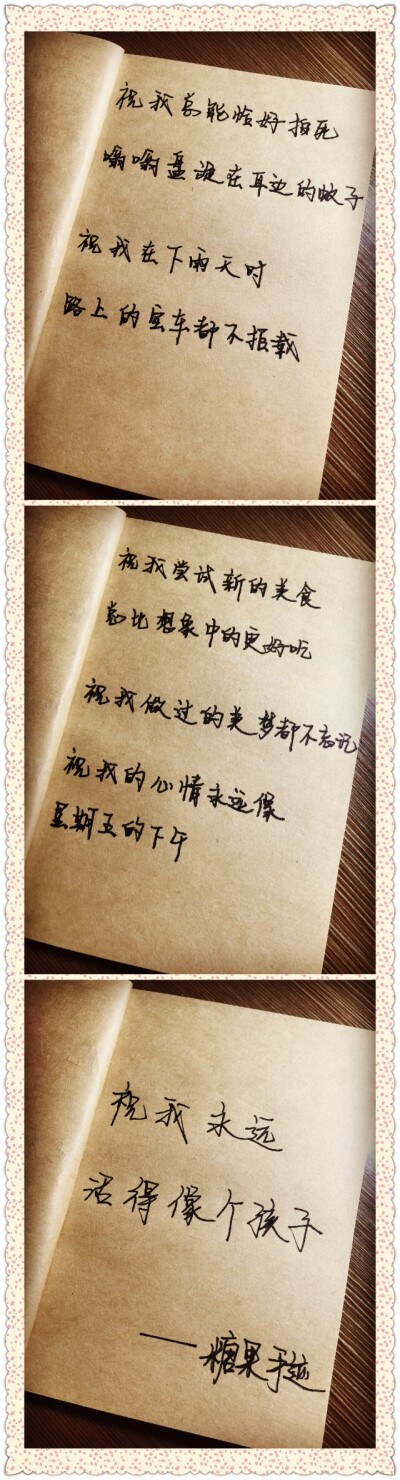 祝我总能恰好拍死
嗡嗡盘旋在耳边的蚊子
祝我在下雨天时
路上的空车都不拒载
祝我尝试新的美食
总比想象中的更好吃
祝我做过的美梦都不忘记
祝我的心情永远像
星期五的下午
祝我永远
活得像个孩子
——糖果手迹